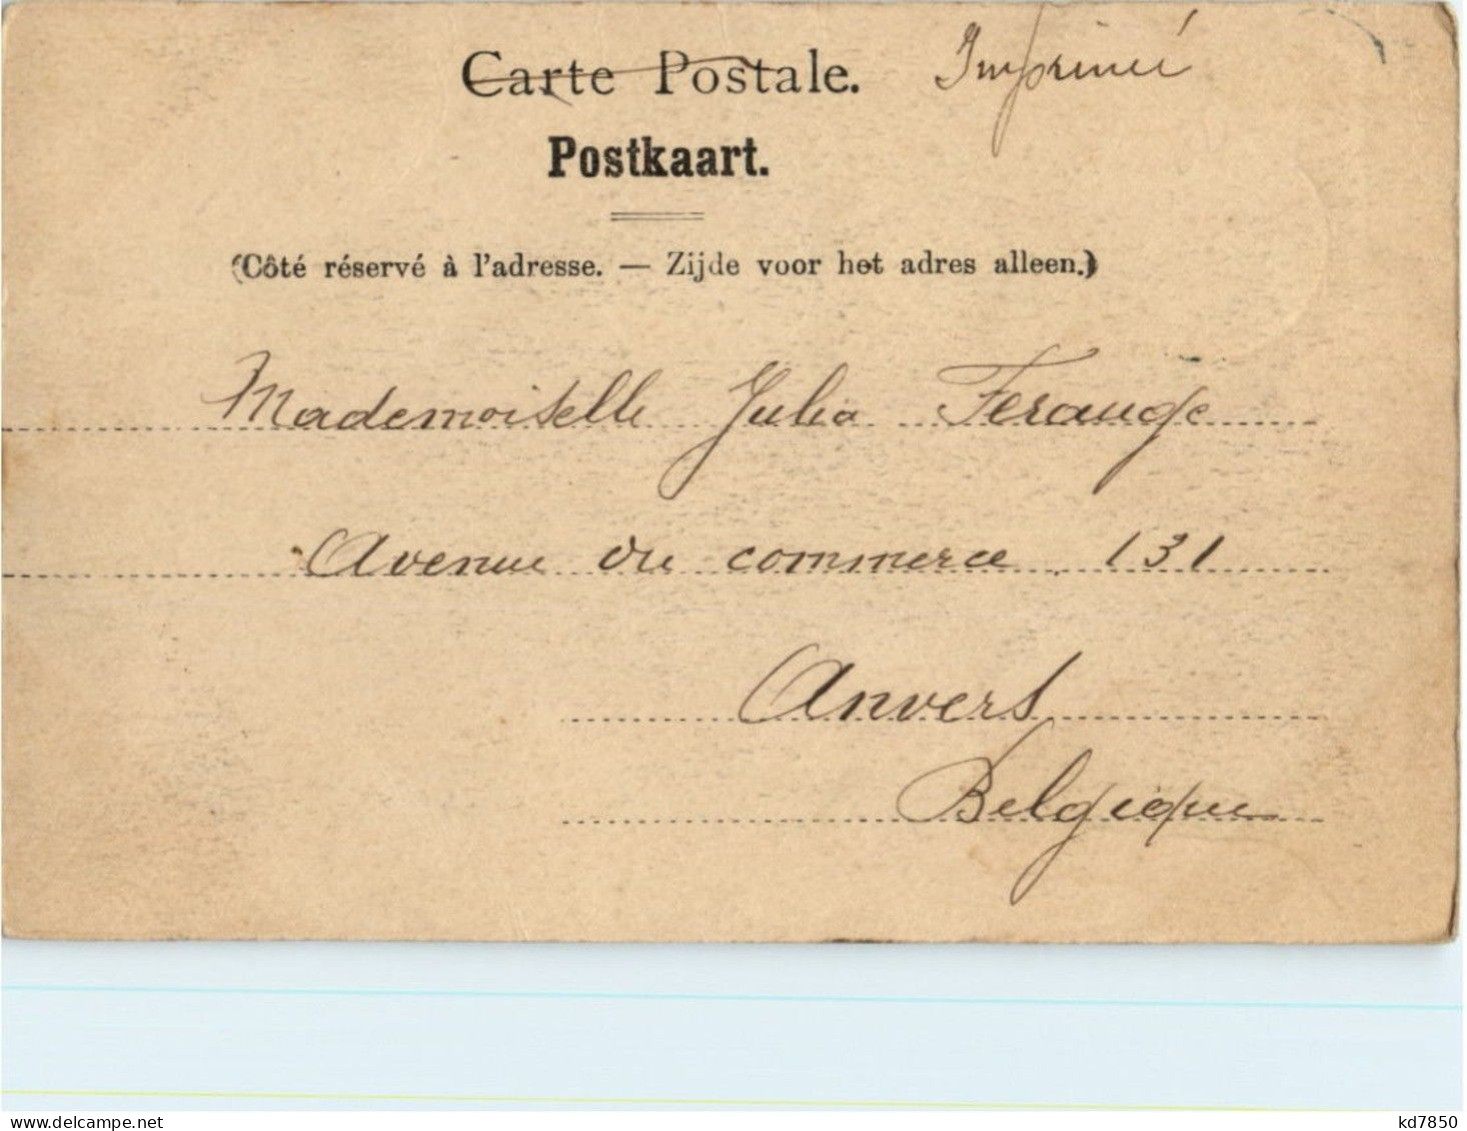 Carte Postale. Imprimé
Postkaart.
(Côté réservé à l'adresse. — Zijde voor het adres alleen.)
Mademoiselle Julia Ferauge
Avenue du commerce, 131
Anvers
Belgique
delcampe.net
kd7850